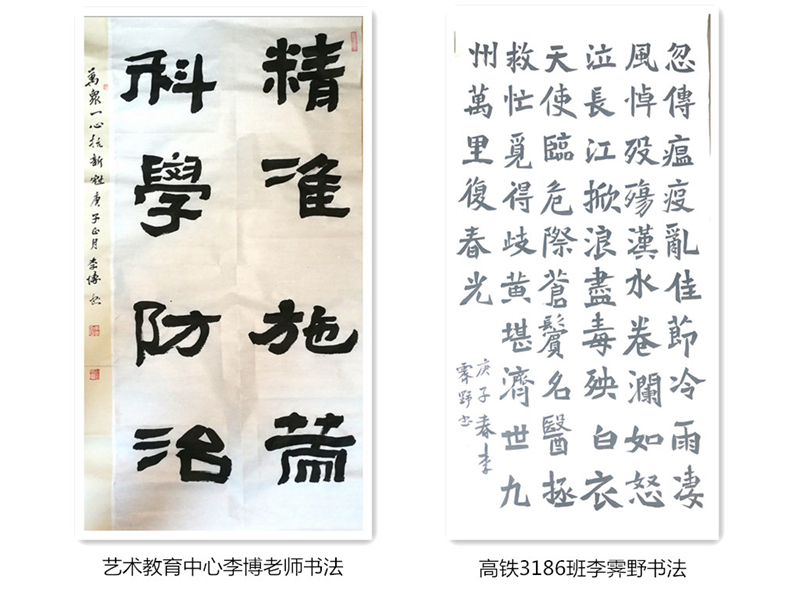 精准施策
科學防治
萬衆一心抗新冠庚子正月李博书
忽傳瘟疫亂佳節冷雨凄
風悼殁殤漢水卷瀾如怒
泣長江掀浪盡毒殃白衣
天使臨危際蒼鬢名醫拯
救忙覓得歧黄堪濟世九
州萬里復春光
庚子春李
霽野书
艺术教育中心李博老师书法
高铁3186班李霁野书法